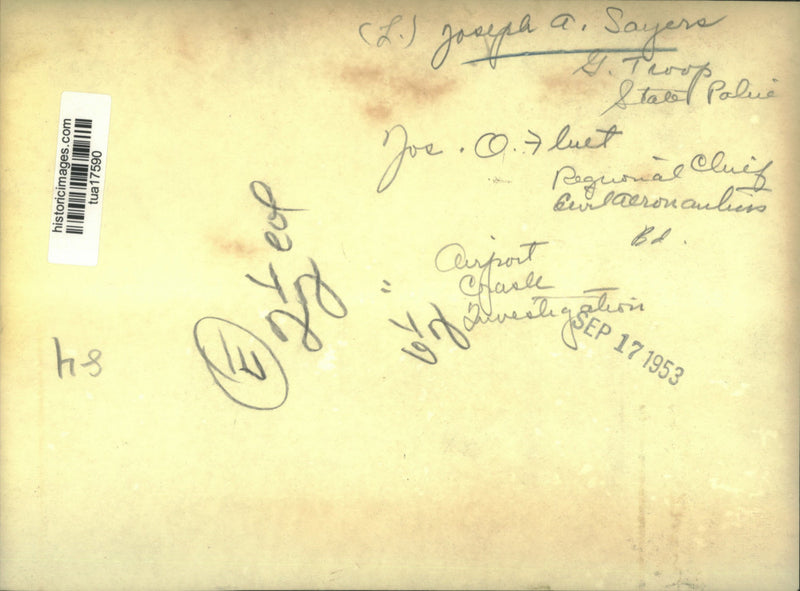 (L.) Joseph A. Sayers
G. Troop
State Police
Jos. O. Fluet
Regional Chief
Civil Aeronautics
Bd.
Airport
Crash
Investigation
SEP 17 1953
historicimages.com
tua17590
E
2 1/2 col
6 1/2 "
h8